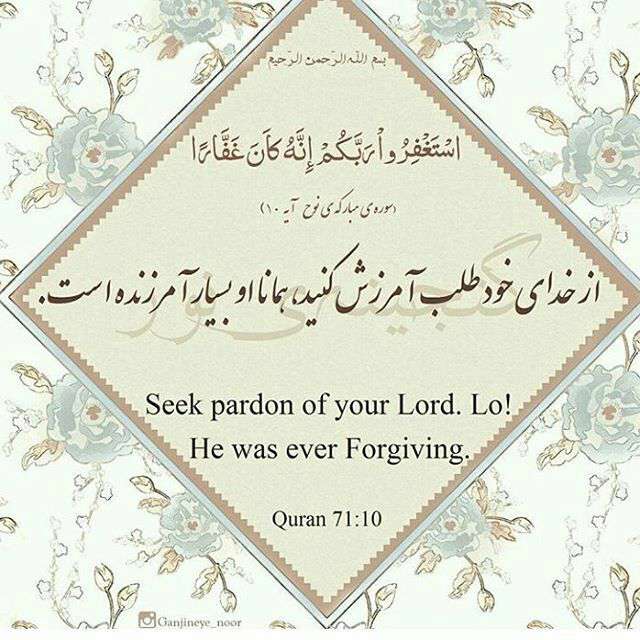 بسم الله الرّحمن الرّحیم
اسْتَغْفِرُواْ رَبَّكُمْ إِنَّهُ كَانَ غَفَّارًا
(سوره‌ی مبارکه‌ی نوح آیه ۱۰)
از خدای خود طلب آمرزش کنید، همانا او بسیار آمرزنده است.
گنجینه‌ی نور
Seek pardon of your Lord. Lo!
He was ever Forgiving.
Quran 71:10
Ganjineye_noor